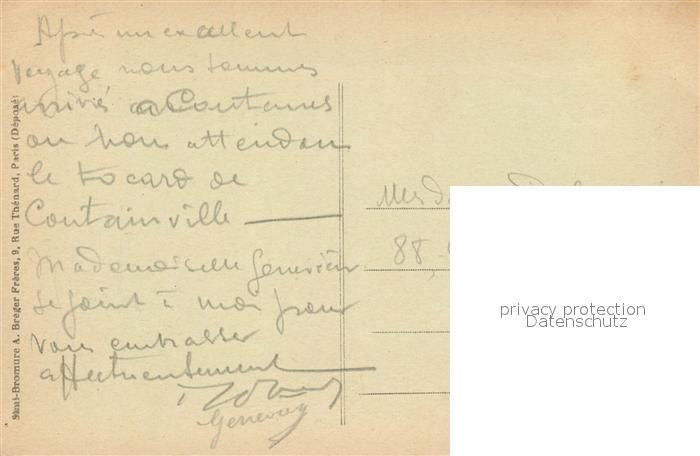 Après un excellent
voyage nous sommes
arrivés a Coutances
ou nous attendons
le tocard de
Coutainville
Mademoiselle Geneviève
se joint à moi pour
vous embrasser
affectueusement
Mesd
88,
privacy protection
Datenschutz
Semi-Bromure A. Breger Frères, 9, Rue Thénard, Paris (Déposé)